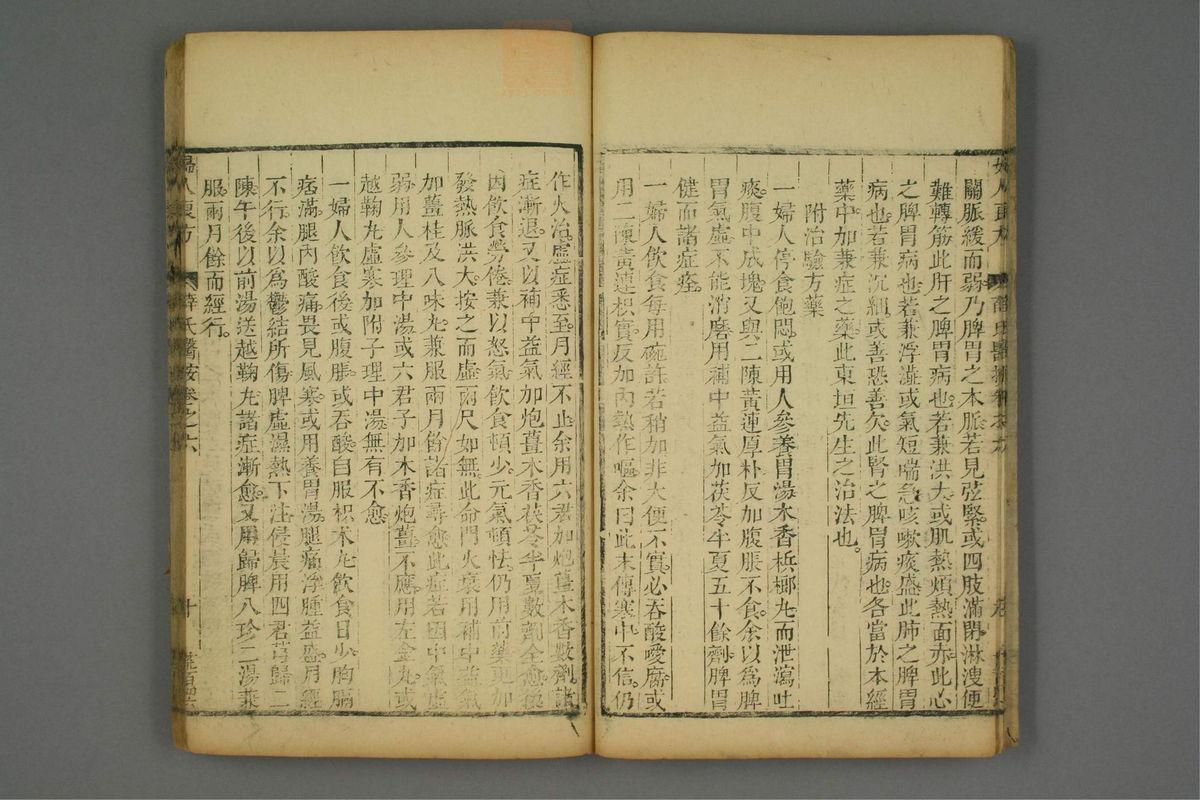 關脈緩而弱乃脾胃之本脈若見弦緊或四肢滿閉淋溲便
難轉筋此肝之脾胃病也若兼洪大或肌熱煩熱面赤此心
之脾胃病也若兼浮澁或氣短喘急咳嗽痰盛此肺之脾胃
病也若兼沉細或善恐善欠此腎之脾胃病也各當於本經
藥中加兼症之藥此東垣先生之治法也
附治驗方藥
一婦人停食飽悶或用人參養胃湯木香梹榔丸而泄瀉吐
痰腹中成塊又與二陳黃連厚朴反加腹脹不食余以爲脾
胃氣虛不能消磨用補中益氣加茯苓半夏五十餘劑脾胃
健而諸症痊
一婦人飲食每用碗許若稍加非大便不實必吞酸噯腐或
用二陳黃連枳實反加內熱作嘔余曰此末傳寒中不信仍
作火治虛症悉至月經不止余用六君加炮薑木香數劑諸
症漸退又以補中益氣加炮薑木香茯苓半夏數劑全愈後
因飲食勞倦兼以怒氣飲食頓少元氣頓怯仍用前藥更加
發熱脈洪大按之而虛兩尺如無此命門火衰用補中益氣
加薑桂及八味丸兼服兩月餘諸症尋愈此症若因中氣虛
弱用人參理中湯或六君子加木香炮薑不應用左金丸或
越鞠丸虛寒加附子理中湯無有不愈
一婦人飲食後或腹脹或吞酸自服枳朮丸飲食日少胸膈
痞滿腿內酸痛畏見風寒或用養胃湯腿痛浮腫益盛月經
不行余以爲鬱結所傷脾虛濕熱下注侵晨用四君芎歸二
陳午後以前湯送越鞠丸諸症漸愈又用歸脾八珍二湯兼
服兩月餘而經行
婦人良方
薛氏醫按卷之六